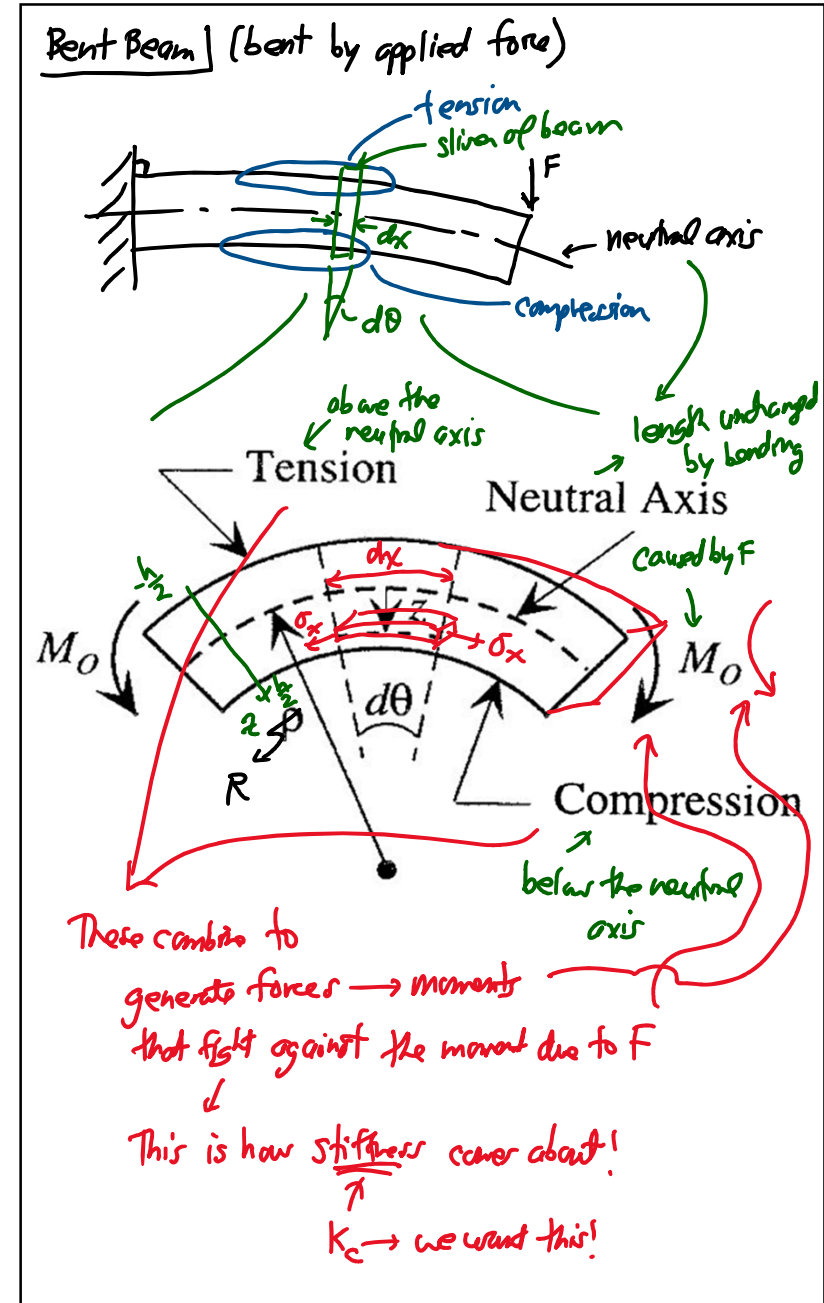 Bent Beam (bent by applied force)
tension
sliver of beam
F
dx
neutral axis
compression
dθ
above the
neutral axis
length unchanged
by bending
Tension
Neutral Axis
caused by F
dx
-h/2
σx
z
σx
Mo
Mo
h/2
z
ρ
dθ
R
Compression
below the neutral
axis
These combine to
generate forces → moments
that fight against the moment due to F
This is how stiffness comes about!
Kc → we want this!